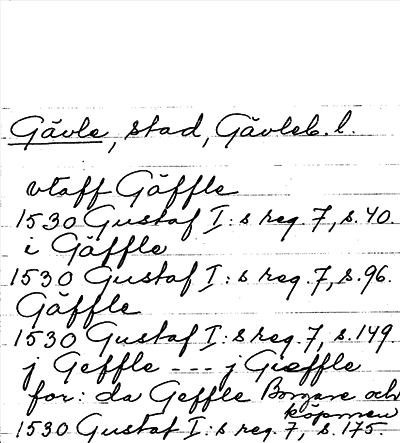 Gävle, stad, Gävleb. l.
vtaff Gäffle
1530 Gustaf I:s reg. 7, s. 40.
i Gäffle
1530 Gustaf I:s reg. 7, s. 96.
Gäffle
1530 Gustaf I:s reg. 7, s. 149
j Geffle --- j Gieffle
for: da Geffle Borgare och
köpmen
1530 Gustaf I:s reg. 7, s. 175.